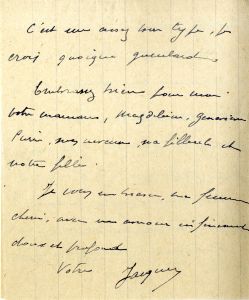 C'est un assez bon type, je
crois quoique gueulard.
Embrassez bien pour moi
votre maman, Magdeleine, Geneviève
mes neveux, ma filleule et
notre fille.
Je vous embrasse, ma femme
chérie, avec un amour infiniment
doux et profond
Votre Jacques